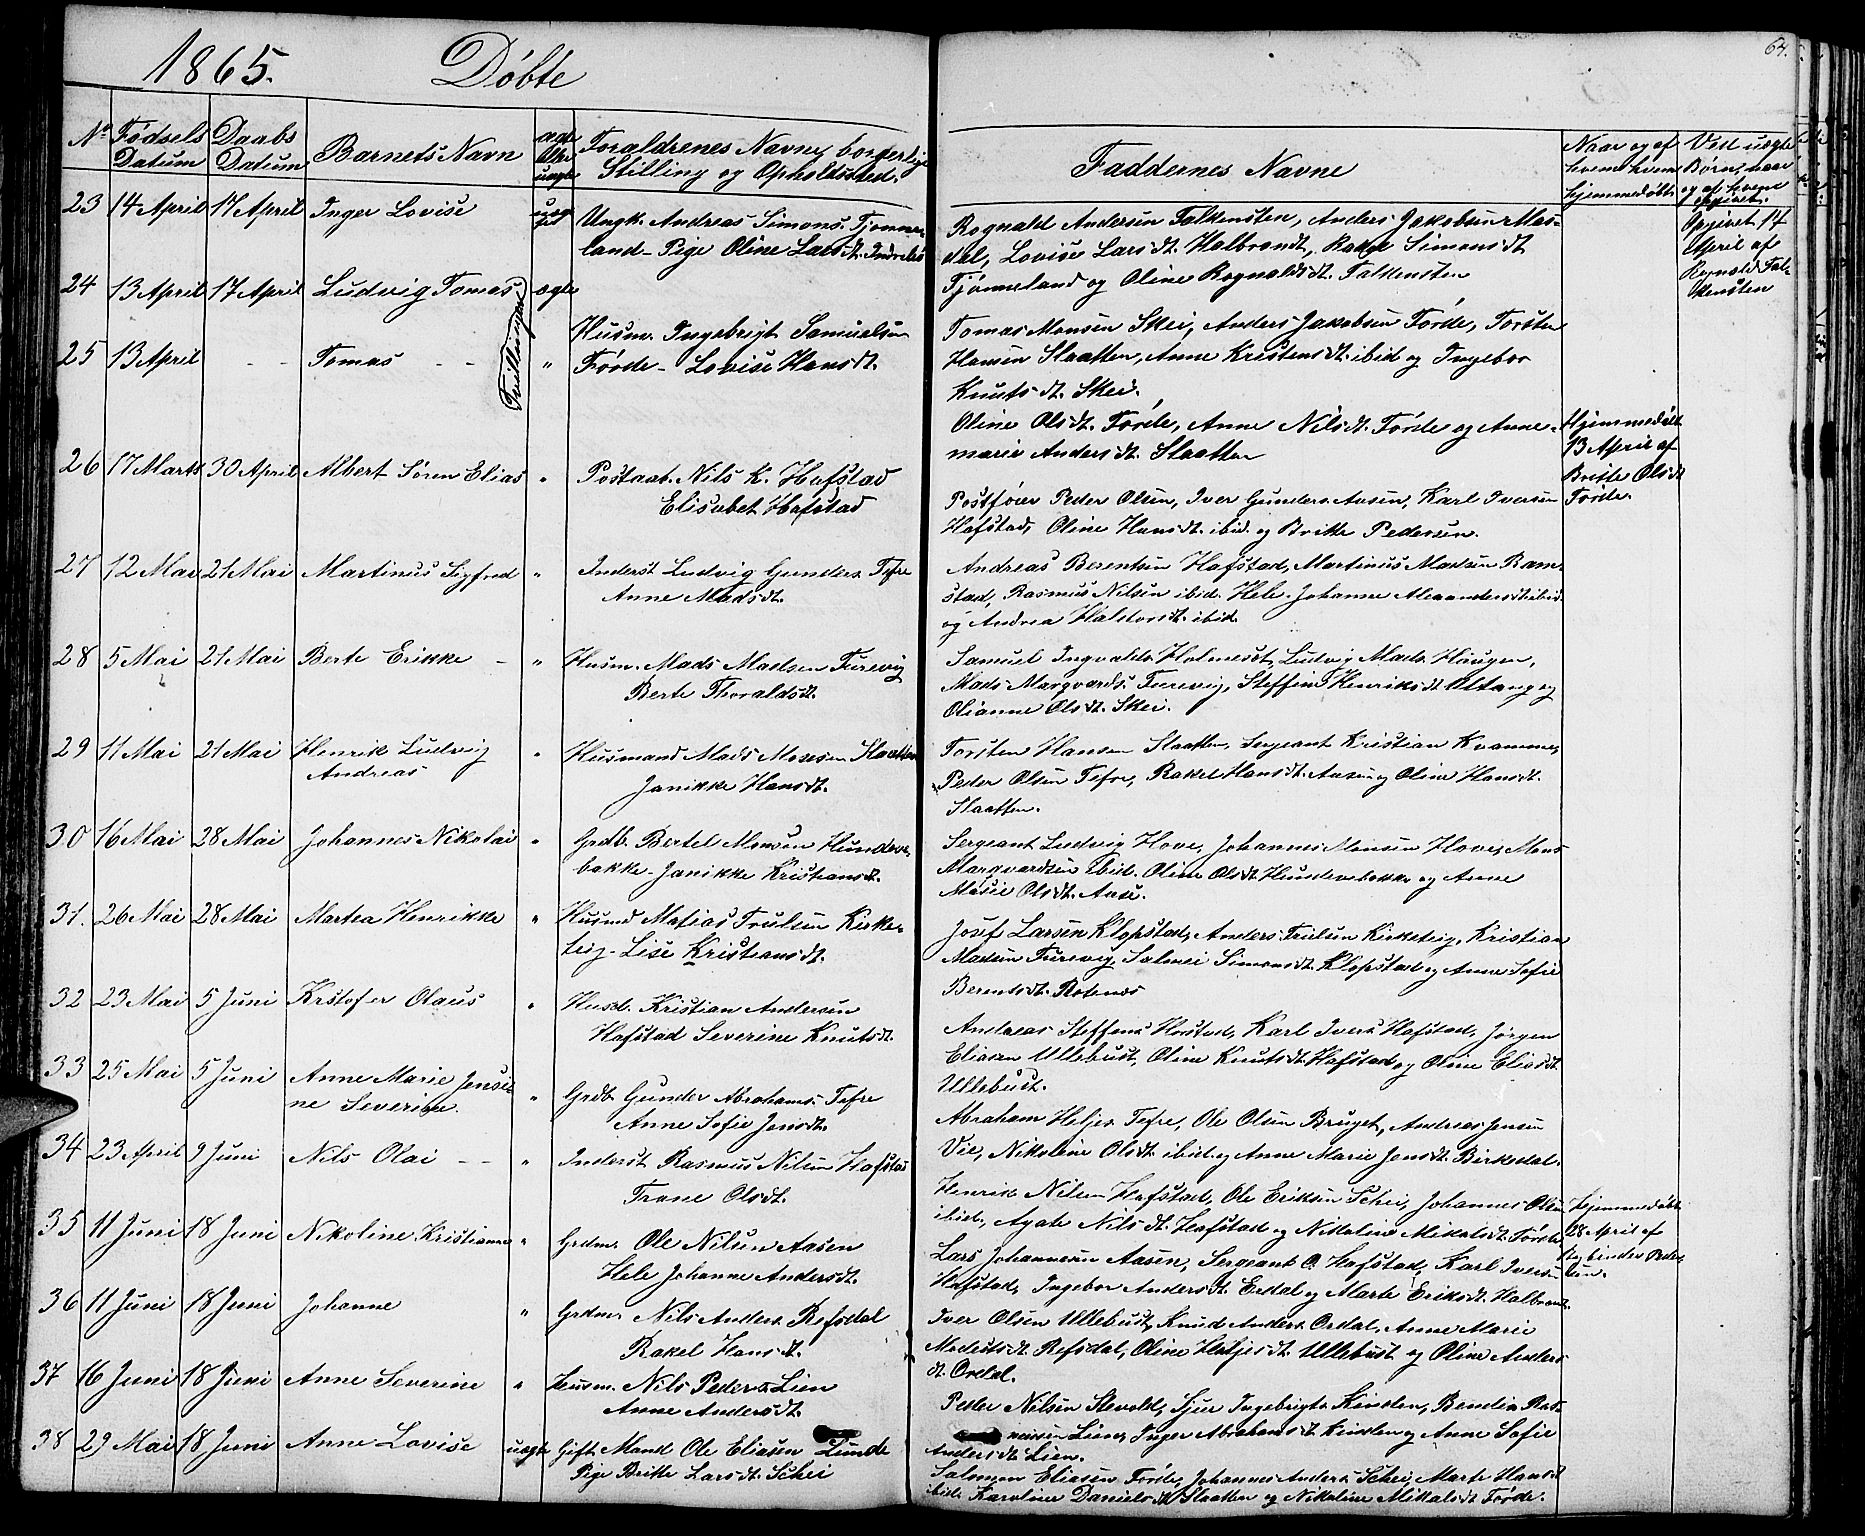 1865. Døbte
64.
No Fødsels Datum
Daabs Datum
Barnets Navn
ægte eller uægte
Forældrenes Navne, borgerlige Stilling og Opholdssted.
Faddernes Navne
Naar og af hvem hjemmedøbt
Ved uægte Børn, naar og af hvem opgivet.
23 14 April 17 April Inger Lovise uægte
Ungk. Andreas Simons. Tjønne-
land - Pige Oline Larsdt. Indrebø
Rognald Andersen Falkensten, Anders Jakobsen Mos-
dal, Lovise Larsdt. Halbrendt, Rakel Simonsdt
Tjønneland og Oline Rognaldsdt. Falkensten
Opgivet 14
April af
Rognald Fal-
kensten
24 13 April 17 April Ludvig Tomas ægte
Tvillinger
Husm. Ingebrigt Samuelsen
Førde - Lovise Hansdt.
Tomas Monsen Skei, Anders Jakobsen Førde, Torsten
Hansen Slaatten, Anne Kristensdt. ibid og Ingebor
Knutsdt. Skei.
25 13 April - - Tomas - - "
Oline Olsdt. Førde, Anne Nilsdt. Førde og Anne-
marie Andersdt. Slaatten
Hjemmedøbt
13 April af
Britte Olsdt
Førde.
26 17 Marts 30 April Albert Søren Elias "
Postaab. Nils K. Hafstad
Elisabet Hafstad
Postfører Peder Olsen, Iver Gunders. Aasen, Karl Iversen
Hafstad, Oline Hansdt. ibid. og Britte Pedersen.
27 12 Mai 21 Mai Martinus Sigfred "
Inderst Ludvig Gunders. Tefre
Anne Madsdt.
Andreas Berentsen Hafstad, Martinus Madsen Ram-
stad, Rasmus Nilsen ibid. Hele Johanne Alexandersdt ibid.
og Andrea Halvorsdt. ibid.
28 5 Mai 21 Mai Berte Erikke - "
Husm. Mads Madsen Furevig
Berte Thoraldsdt.
Samuel Ingvalds. Holmeset, Ludvig Mads. Haugen,
Mads Marqvards. Furevig, Steffine Henriksdt. Ottang og
Olianne Olsdt. Skei.
29 11 Mai 21 Mai Henrik Ludvig "
Andreas
Husmand Mads Mosesen Slaatten
Janikke Hansdt.
Torsten Hansen Slaatten, Sergeant Kristian Kvamme,
Peder Olsen Tefre, Rakel Hansdt. Aasen og Oline Hansdt.
Slaatten.
30 16 Mai 28 Mai Johannes Nikolai "
Grdb. Bertel Monsen Hundve-
bakke - Janikke Kristiansdt.
Sergeant Ludvig Hove, Johannes Monsen Hove, Mons
Marqvardsen ibid. Oline Olsdt Hundevebakke og Anne
Marie Olsdt. Aase.
31. 26 Mai 28 Mai Martea Henrikke "
Husmd Matias Trulsen Kirke-
teig - Lise Kristiansdt.
Josef Larsen Klopstad, Anders Trulsen Kirketeig, Kristian
Madsen Furevig, Salmei Simonsdt. Klopstad og Anne Sofie
Berentsdt. Rotenes
32 23 Mai 5 Juni Krstofer Olaus "
Husb. Kristian Andersen
Hafstad Severine Knutsdt.
Andreas Steffens. Horstad, Karl Ivers. Hafstad, Jørgen
Eliasen Ullebust, Oline Knutsdt. Hafstad og Oline Eliasdt
Ullebust.
33 25 Mai 5 Juni Anne Marie Jensi-
ne Severine. "
Grdb. Gunder Abrahams. Tefre
Anne Sofie Jensdt.
Abraham Heljes. Tefre, Ole Olsen Bruget, Andreas Jensen
Vie, Nikoline Olsdt. ibid. og Anne Marie Jensdt. Birkedal.
34 23 April 9 Juni Nils Olai - - "
Inderst Rasmus Nilsen Hafstad
Trone Olsdt.
Henrik Nilsen Hafstad, Ole Eriksen Schei, Johannes Olsen
ibid., Agate Nilsdt. Hafstad og Nikoline Mikalsdt. Førde.
Hjemmedøbt
28 April af
Peder-
sen.
35 11 Juni 18 Juni Nikoline Kristianne "
Grdm. Ole Nilsen Aasen
Hele Johanne Andersdt.
Lars Johannesen Aasen, Sergeant O. Hafstad, Karl Iversen
Hafstad, Ingebor Andersdt. Erdal og Marte Eriksdt. Halbrendt.
36 11 Juni 18 Juni Johanne "
Grdm. Nils Anders. Refsdal
Rakel Hansdt.
Iver Olsen Ullebust, Knud Anders. Ordal, Anne Marie
Modestsdt. Refsdal, Oline Heljesdt. Ullebust og Oline Anders
dt. Ordal.
37 16 Juni 18 Juni Anne Severine "
Husm. Nils Peders. Lien
Anne Andersdt.
Peder Nilsen Slevold, Sjur Ingebrigts. Kinden, Bendix Ras-
musen Lien, Inger Abrahamsdt. Kinden og Anne Sofie
Andersdt. Lien.
38 29 Mai 18 Juni Anne Lovise uægte
Gift Mand Ole Eliasen Lunde
Pige Britte Larsdt. Schei
Salomon Eliasen Førde, Johannes Anders. Schei, Marte Hansdt
ibid. Karoline Danielsdt. Slaatten og Nikoline Mikalsdt Førde.